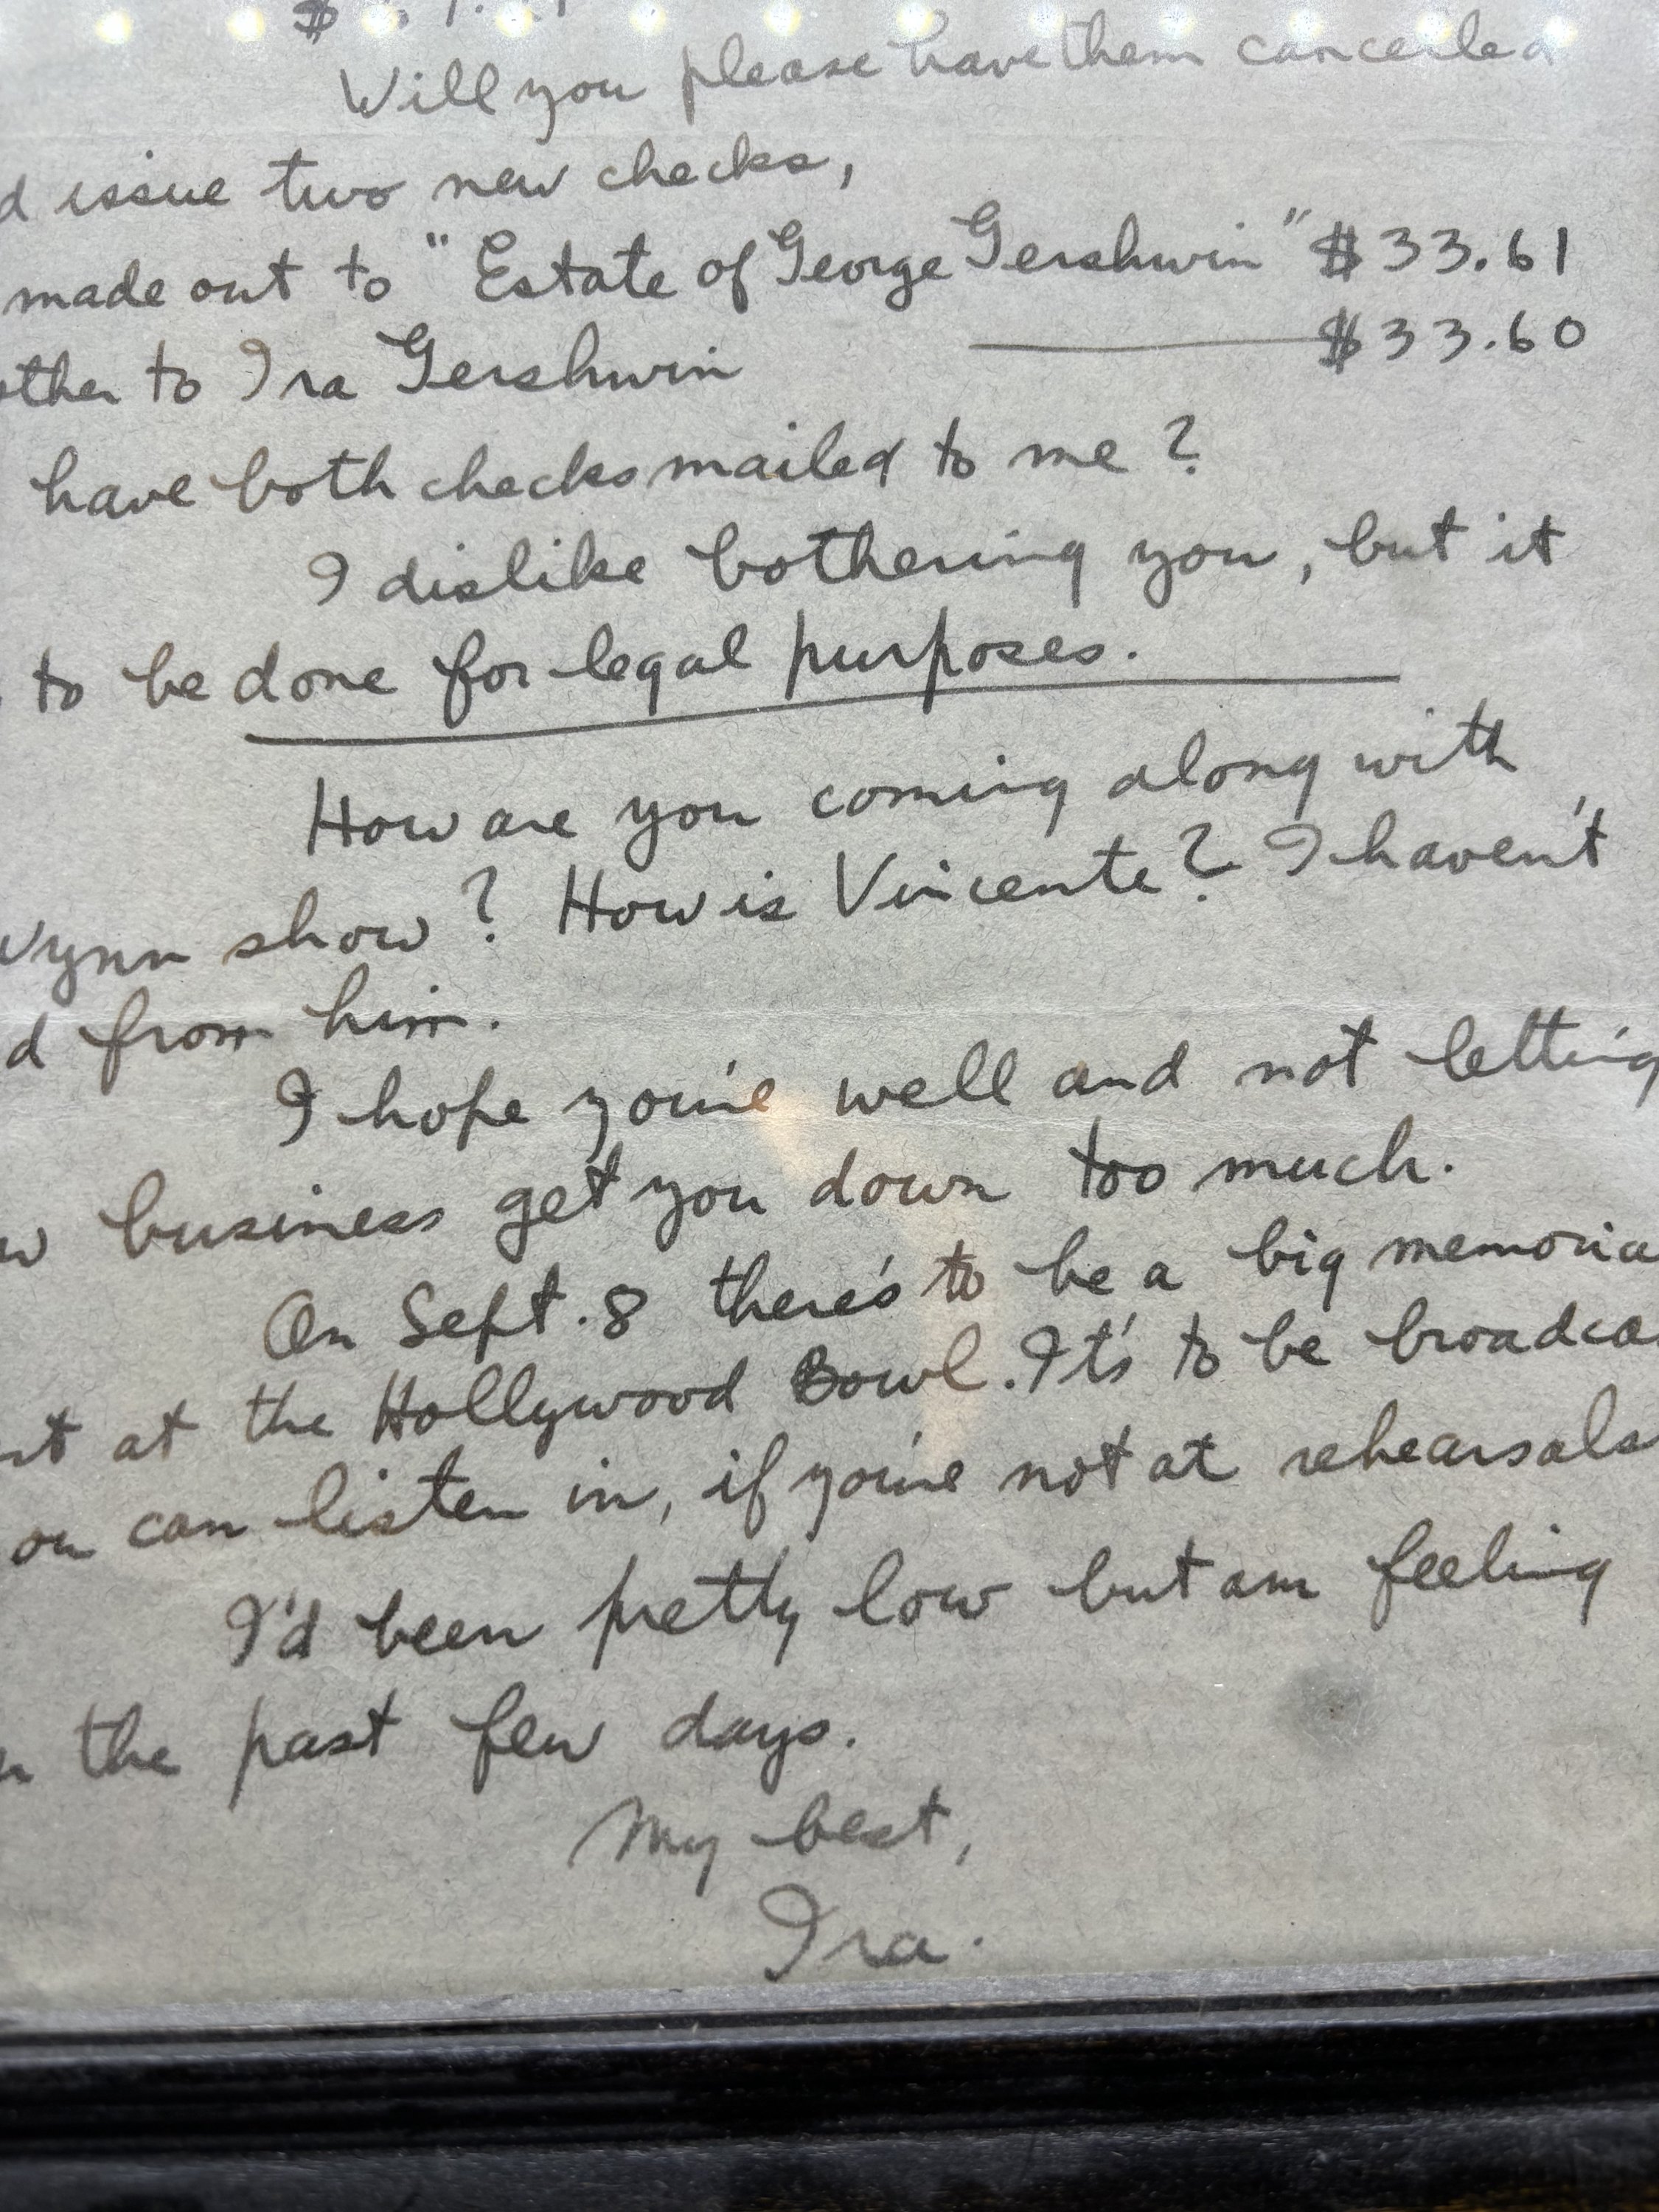 Will you please have them cancelled
d issue two new checks,
made out to "Estate of George Gershwin" $33.61
other to Ira Gershwin $33.60
have both checks mailed to me?
I dislike bothering you, but it
to be done for legal purposes.
How are you coming along with
Wynn show? How is Vincente? I haven't
d from him.
I hope you're well and not letting
w business get you down too much.
On Sept. 8 there's to be a big memoria
rt at the Hollywood Bowl. It's to be broadca
ou can listen in, if you're not at rehearsals
I'd been pretty low but am feeling
the past few days.
My best,
Ira.